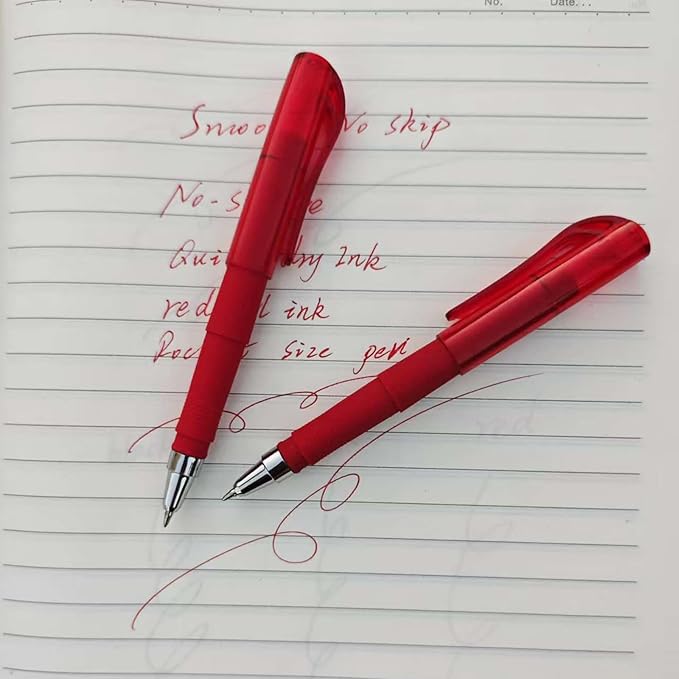 No. Date...
Smoo No skip
No-s e
Qui dry Ink
red l ink
Poc t size pen
red